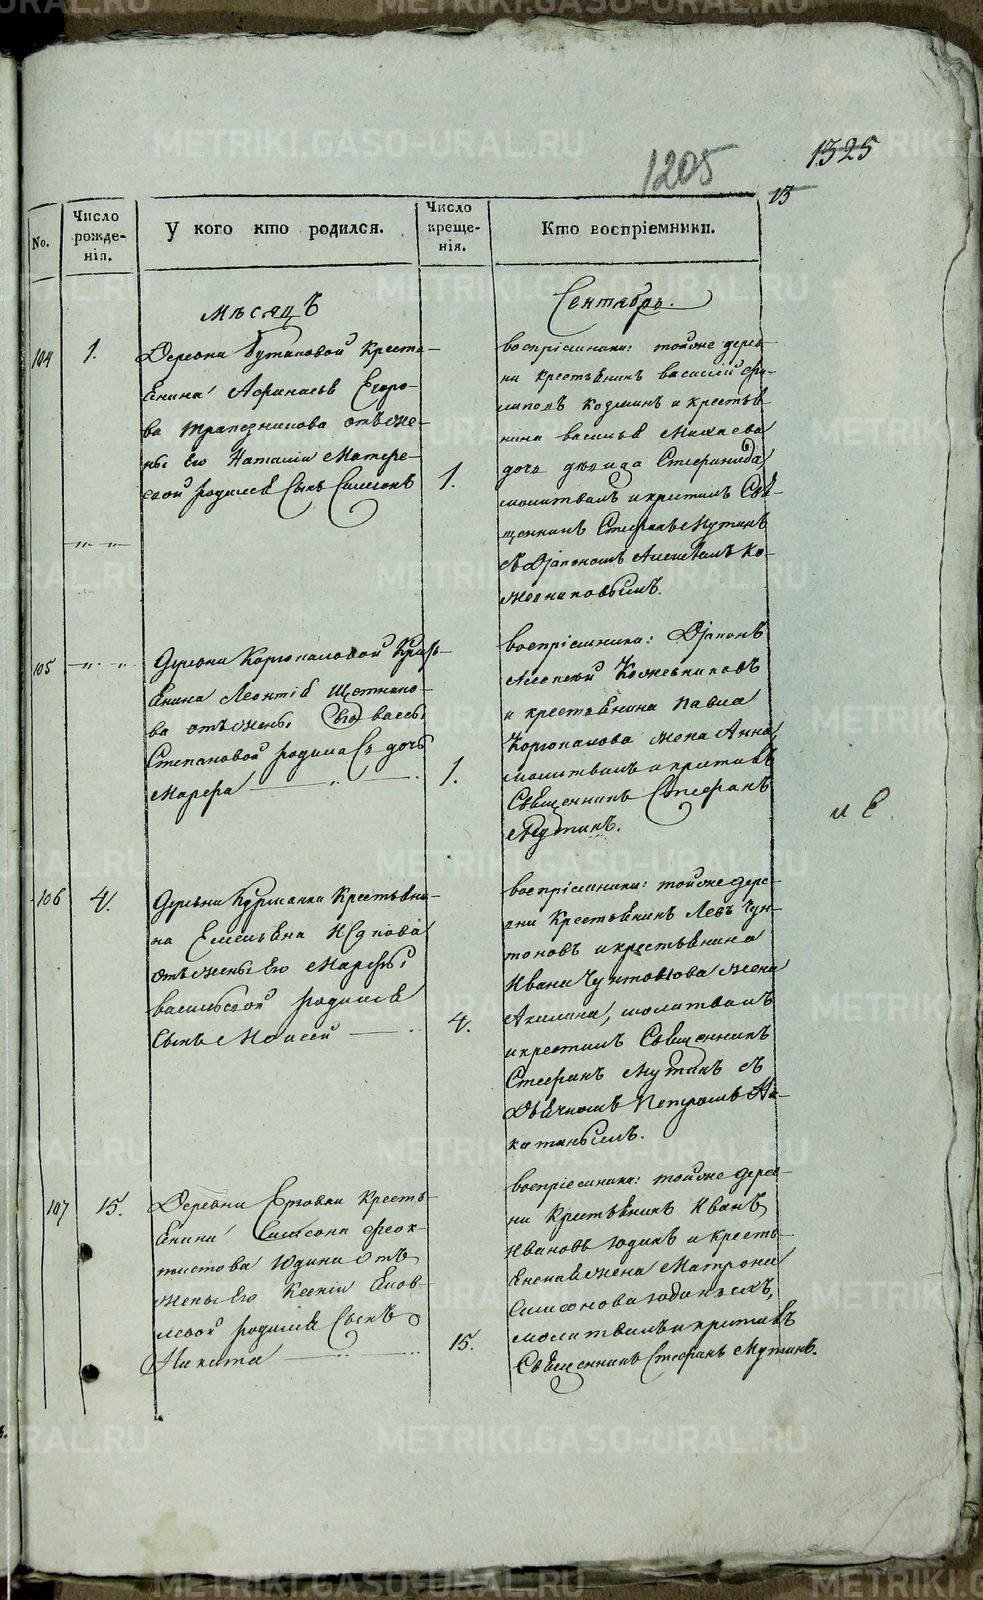 1205
1325
13
No.
Число рожде-нія.
У кого кто родился.
Число креще-нія.
Кто воспріемники.
мѣсяцъ
Сентябрь.
104
1.
Деревни Бутаковой Кресть-
янина Афанасья Егоро-
ва Трапезникова отъ же-
ны Его Наталіи
родился Сынъ Симеонъ
1.
воспріемники: тойже дерев-
ни крестьянинъ василій Фи-
липовъ Козминъ и крестья-
нина василья
дочь дѣвица Стефанида,
молитвилъ и крестилъ Свя-
щенникъ Стефанъ Мутинъ
съ Діакономъ Алексѣемъ Ко-
жевниковымъ.
105
Деревни Коргопаловой Крест-
янина Леонтія Щетнико-
ва отъ жены Его васы
Степановой родилась дочь
Марфа
1.
воспріемники: Діаконъ
Алексѣй Кожевниковъ
и крестьянина Павла
Коргополова жена Анна,
молитвилъ и крестилъ
Священникъ Стефанъ
Мутинъ.
106
4.
Деревни Курманки Крестьяни-
на Емельяна
отъ жены Его Марфы
васильевой родился
Сынъ Моисей
4.
воспріемники: тойже дере-
вни Крестьянинъ Левъ Чун-
тоновъ и крестьянина
Ивана Чунтонова жена
Акилина, молитвилъ
и крестилъ Священникъ
Стефанъ Мутинъ съ
Дьячкомъ Петромъ
107
15.
Деревни Крестья-
янина Симеона Феок-
тистова Юдина отъ
жены Его Ксеніи Іаков-
левой родился Сынъ
Никита
15.
воспріемники: тойже дерев-
ни Крестьянинъ Иванъ
Ивановъ Юдинъ и кресть-
жена Матрона
Симеонова
молитвилъ и крестилъ
Священникъ Стефанъ Мутинъ.
METRIKI.GASO-URAL.RU